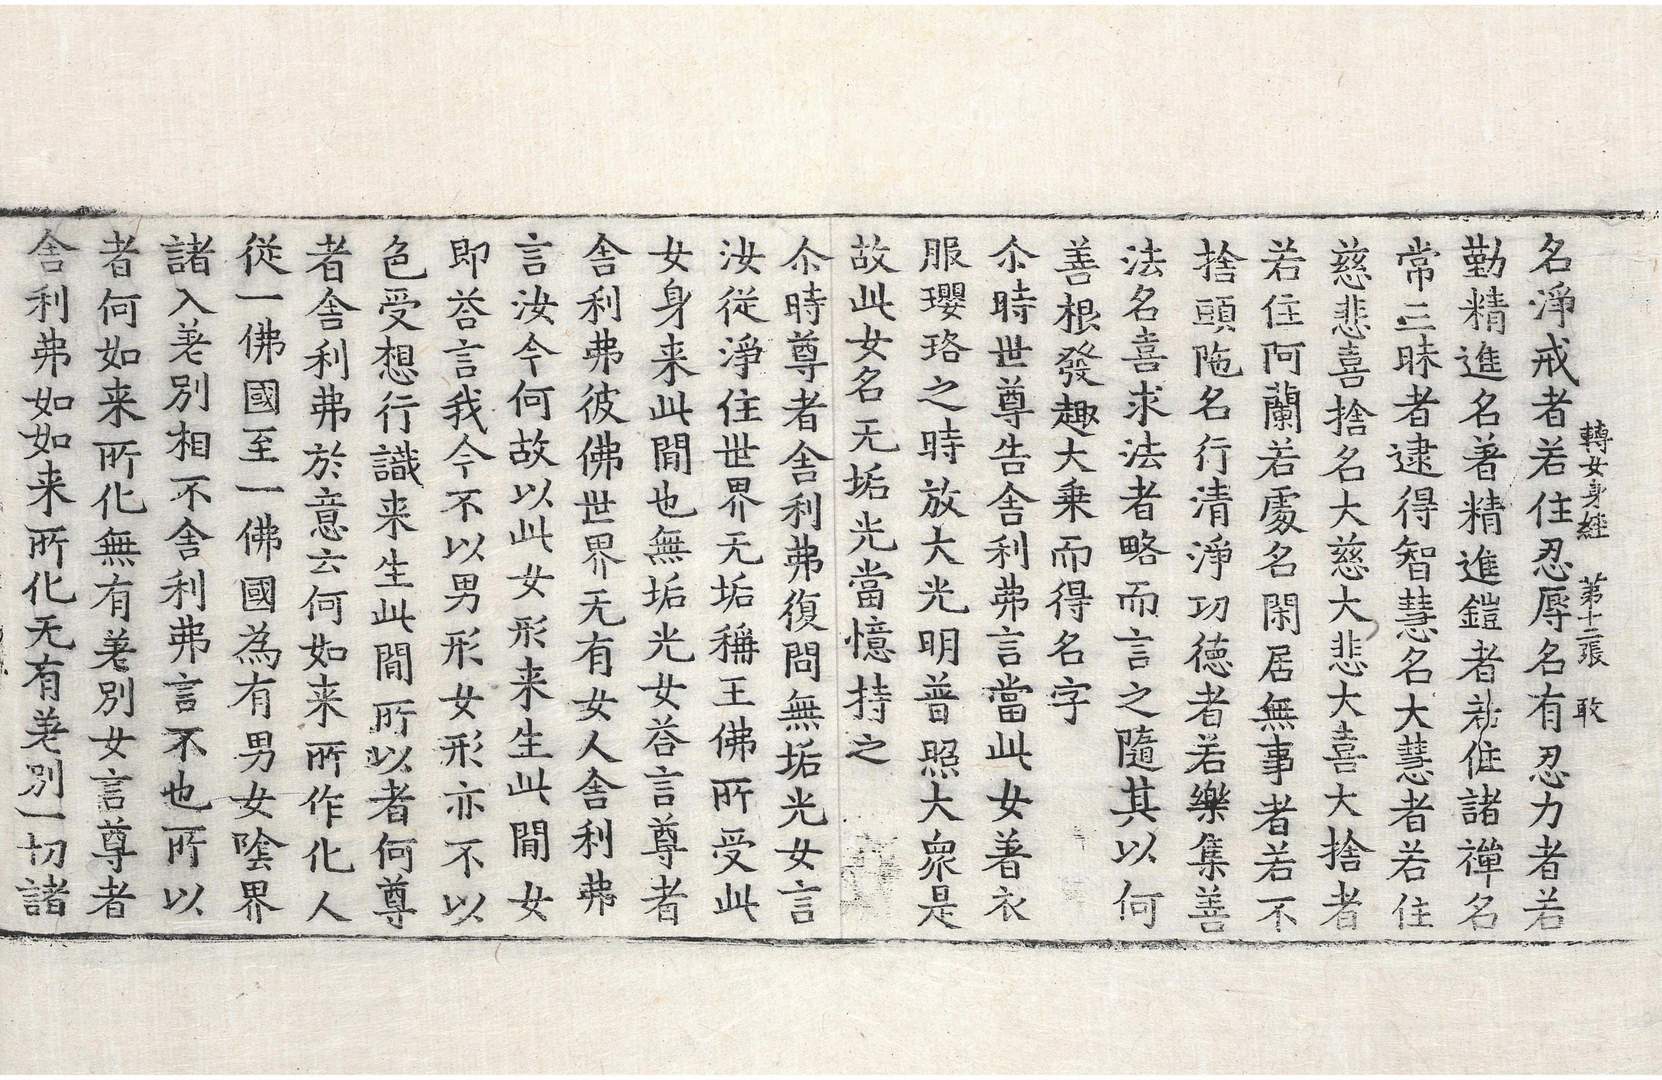 轉女身經 第十二張 敢
名淨戒者若住忍辱名有忍力者若
勤精進名著精進鎧者若住諸禪名
常三昧者逮得智慧名大慧者若住
慈悲喜捨名大慈大悲大喜大捨者
若住阿蘭若處名閑居無事者若不
捨頭陁名行清淨功德者若樂集善
法名喜求法者略而言之隨其以何
善根發趣大乗而得名字
尒時世尊告舎利弗言當此女著衣
服瓔珞之時放大光明普照大衆是
故此女名无垢光當憶持之
尒時尊者舎利弗復問無垢光女言
汝從淨住世界无垢稱王佛所受此
女身来此閒也無垢光女荅言尊者
舎利弗彼佛世界无有女人舎利弗
言汝今何故以此女形来生此閒女
即荅言我今不以男形女形亦不以
色受想行識来生此閒所以者何尊
者舎利弗於意云何如来所作化人
從一佛國至一佛國為有男女陰界
諸入差別相不舎利弗言不也所以
者何如来所化無有差別女言尊者
舎利弗如如来所化无有差別一切諸